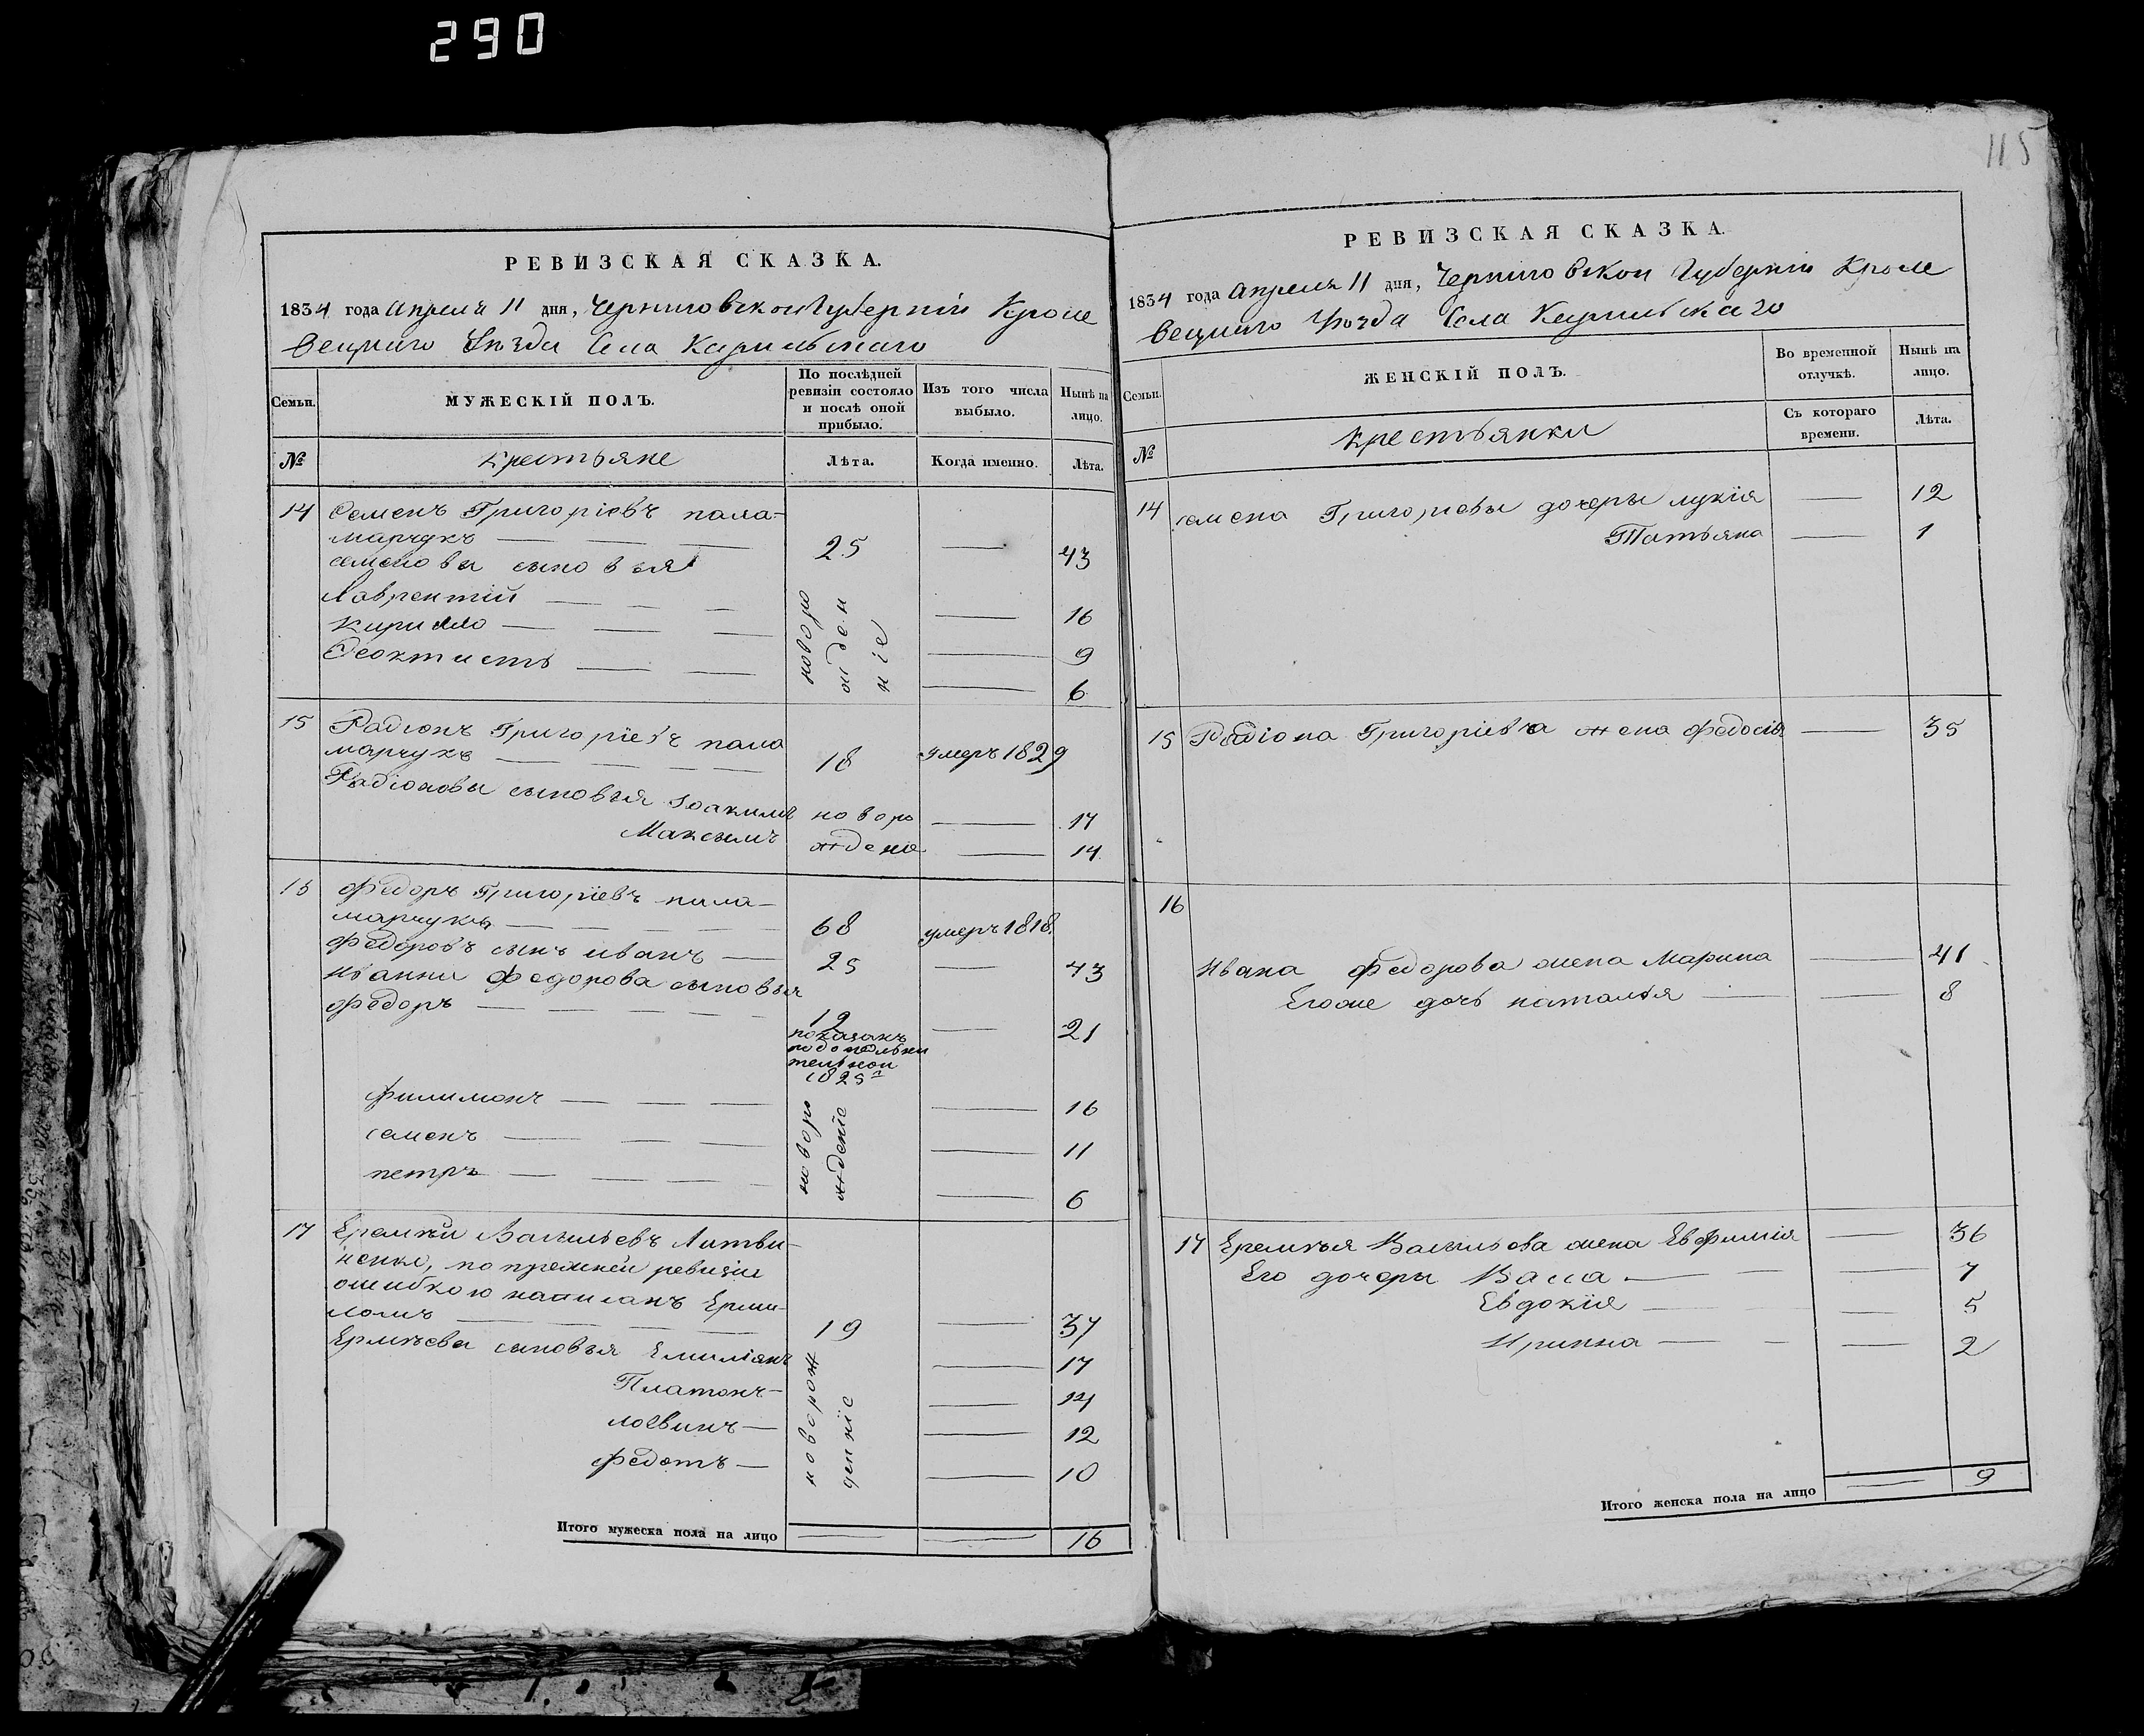 290
115
РЕВИЗСКАЯ СКАЗКА.
1834 года Апреля 11 дня, Черниговской Губерніи Кроле
вецкаго Уѣзда Села Карильскаго
Семьи.
МУЖЕСКІЙ ПОЛЪ.
По послѣдней
ревизіи состояло
и послѣ оной
прибыло.
Изъ того числа
выбыло.
Нынѣ на
лицо.
№
Крестьяне
Лѣта.
Когда именно.
Лѣта.
14 Семенъ Григоріевъ пала-
марчукъ 25 — 43
семеновы сыновъя
Лаврентий — 16
Кирилло — 9
Феоктистъ — 6
новоро
жден
ніе
15 Радіонъ Григоріевъ пала
марчукъ 18 умеръ 1829
Радіоновы сыновъя Іоакимъ новоро — 17
Максимъ ждено — 14
16 Федоръ Григоріевъ пала-
марчукъ 68 умеръ 1818.
Федоровъ сынъ иванъ — 25 — 43
Федорова сыновъя
Федоръ — 12 — 21
показанъ
1825
филимонъ — 16
семенъ — 11
петръ — 6
новоро
жденіе
17 Еремѣй Васильевъ Литви-
ненко, по прежней ревизіи
ошибкою написанъ Ерми-
ломъ 19 — 37
Ермѣевы сыновъя Емиліянъ — 17
Платонъ — 14
логвинъ — 12
федотъ — 10
новорож
деніе
Итого мужеска пола на лицо — — 16
РЕВИЗСКАЯ СКАЗКА.
1834 года Апреля 11 дня, Черниговской Губерніи Кроле
вецкаго Уѣзда Села Карильскаго
Семьи.
ЖЕНСКІЙ ПОЛЪ.
Во временной
отлучкѣ.
Нынѣ на
лицо.
№
Крестьянки
Съ котораго
времени.
Лѣта.
14 семена Григориевы дочеры лукія — 12
Татьяна — 1
15 Радіона Григоріева жена федосія — 35
16
Ивана федорова жена Марина — 41
Егоже дочь наталія — 8
17 Еремѣя Васильева жена Евфимія — 36
Его дочеры Васса — 7
Евдокія — 5
Иринна — 2
Итого женска пола на лицо — 9